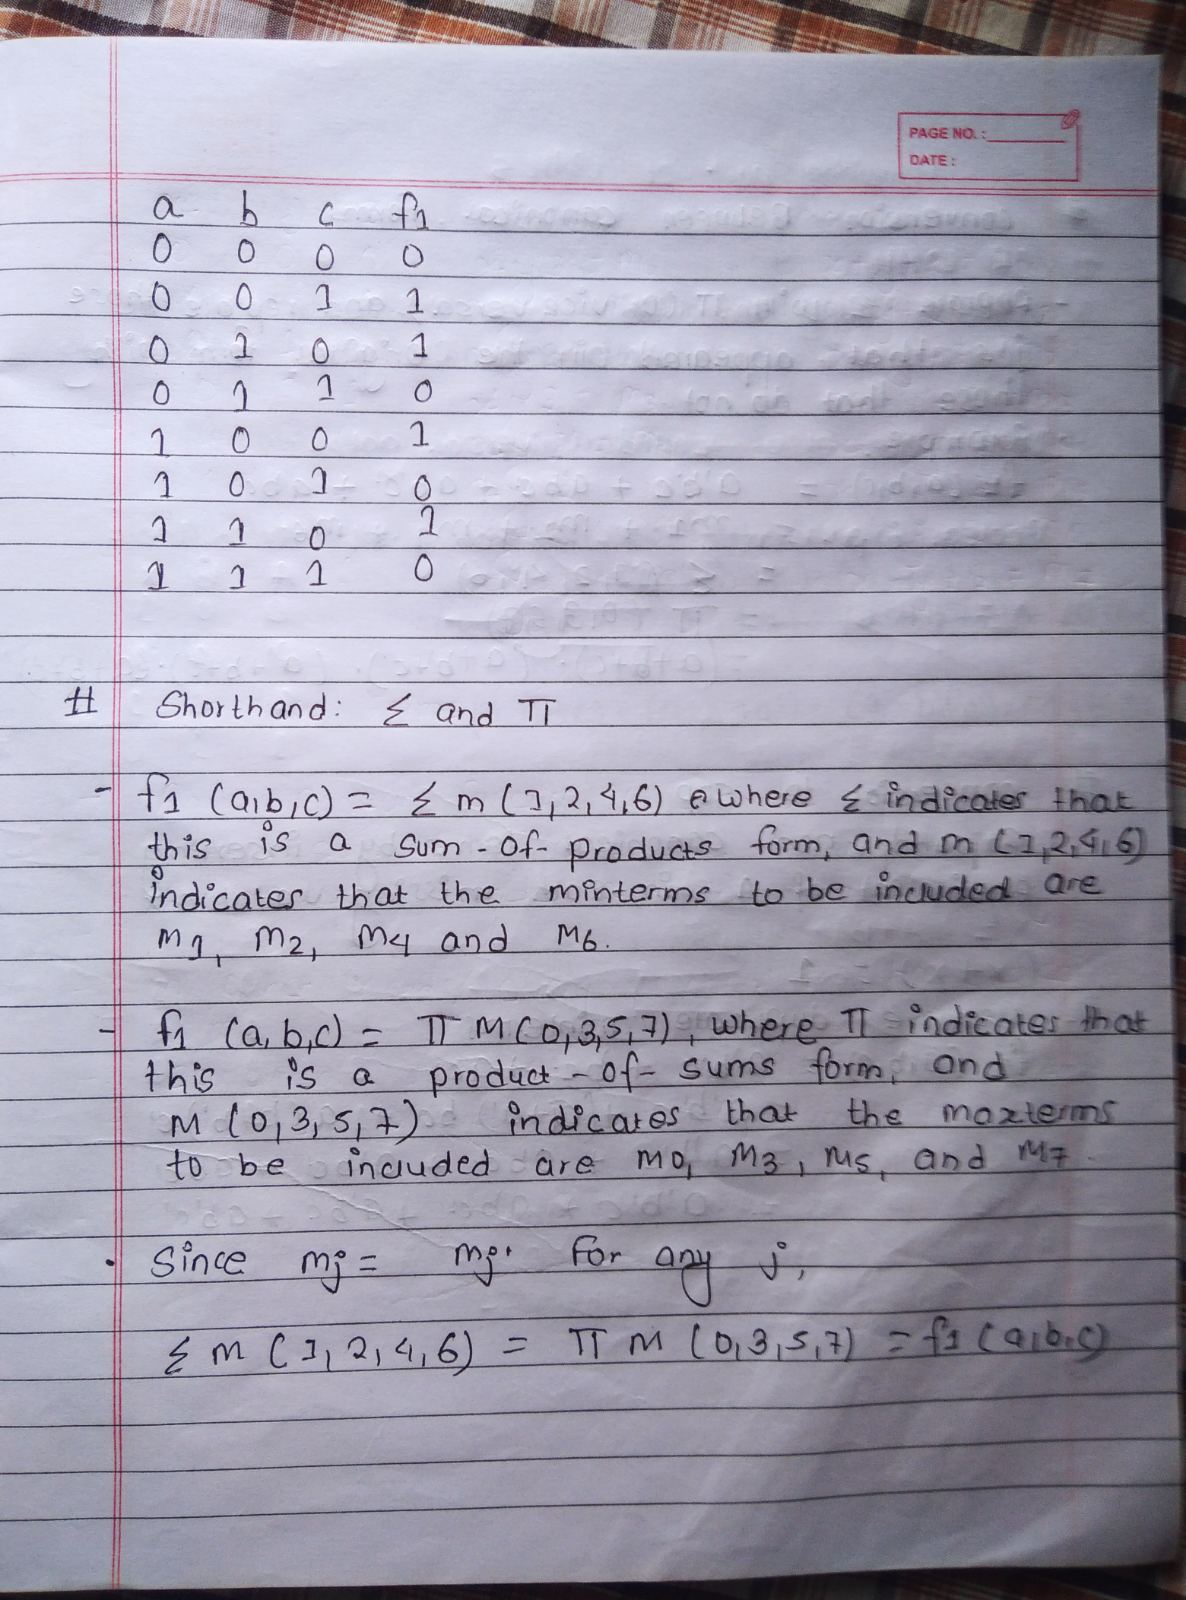 PAGE NO. :
DATE :
a b c f1
0 0 0 0
0 0 1 1
0 1 0 1
0 1 1 0
1 0 0 1
1 0 1 0
1 1 0 1
1 1 1 0
# Shorthand: Σ and Π
- f1 (a,b,c) = Σ m (1,2,4,6) where Σ indicates that
this is a sum-of-products form, and m (1,2,4,6)
indicates that the minterms to be included are
m1, m2, m4 and m6.
- f1 (a,b,c) = Π M(0,3,5,7), where Π indicates that
this is a product-of-sums form, and
M (0,3,5,7) indicates that the maxterms
to be included are M0, M3, M5, and M7.
• Since mj = Mj' for any j,
Σ m (1,2,4,6) = Π M (0,3,5,7) = f1 (a,b,c)